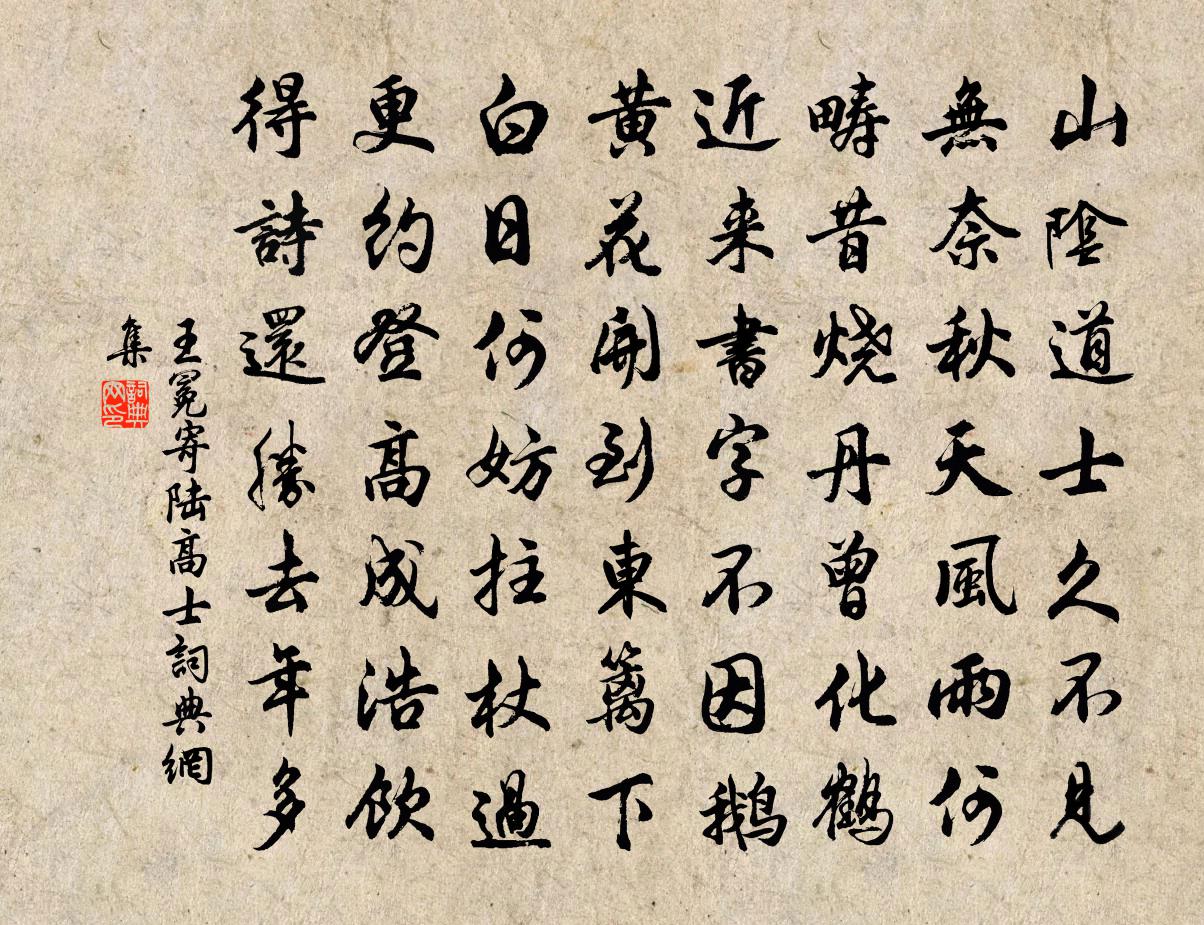 山陰道士久不見
無奈秋天風雨何
疇昔燒丹曾化鶴
近来書字不因鵝
黃花開到東籬下
白日何妨拄杖過
更約登高成浩飲
得詩還勝去年多
王冕寄陸高士詞典網
集
詞典網印